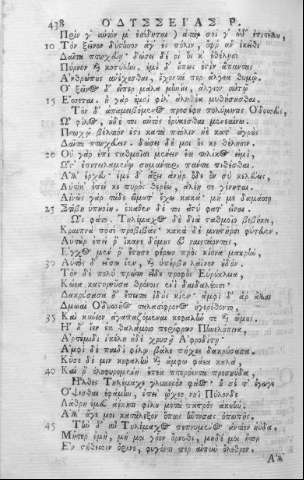 438 ΟΔΥΣΣΕΙΑΣ Ρ.
Πρίν γ' αὐτόν με ἐσίδηται) ἀτὰρ σοί γ' ὧδ' ἐπιτέλλω,
10 Τὸν ξεῖνον δύστηνον ἄγ' ἐς πόλιν, ὄφρ' ἂν ἐκεῖθι
Δαῖτα πτωχεύῃ· δώσει δέ οἱ ὅς κ' ἐθέλῃσι
Πύρνον καὶ κοτύλην, ἐμὲ δ' οὔπως ἔστιν ἅπαντας
Ἀνθρώπους ἀνέχεσθαι, ἔχοντά περ ἄλγεα θυμῷ.
Ὁ ξεῖνος δ' εἴπερ μάλα μηνίει, ἄλγιον αὐτῷ
15 Ἔσσεται· ἦ γὰρ ἐμοὶ φίλ' ἀληθέα μυθήσασθαι.
Τὸν δ' ἀπαμειβόμενος προσέφη πολύμητις Ὀδυσσεύς,
Ὦ φίλος, οὐδέ τοι αὐτὸς ἐρύκεσθαι μενεαίνω.
Πτωχῷ βέλτερόν ἐστι κατὰ πτόλιν ἠὲ κατ' ἀγροὺς
Δαῖτα πτωχεύειν· δώσει δέ μοι ὅς κ' ἐθέλῃσιν.
20 Οὐ γὰρ ἐπὶ σταθμοῖσι μένειν ἔτι τηλίκος εἰμί,
Ὥς' ἐπιτειλαμένῳ σημάντορι πάντα πιθέσθαι.
Ἀλλ' ἔρχευ· ἐμὲ δ' ἄξει ἀνὴρ ὅδε ὃν σὺ κελεύεις,
Αὐτίκ' ἐπεί κε πυρὸς θερέω, ἀλέη τε γένηται.
Αἰνῶς γὰρ τάδε εἵματ' ἔχω κακά· μή με δαμάσσῃ
25 Στίβη ὑπηοίη, ἕκαθεν δέ τε ἄστυ φάτ' εἶναι.
Ὣς φάτο. Τηλέμαχος δὲ διὰ σταθμοῖο βεβήκει,
Κραιπνὰ ποσὶ προβιβάς· κακὰ δὲ μνηστῆρσι φύτευεν.
Αὐτὰρ ἐπεί ῥ' ἵκανε δόμους εὖ ναιετάοντας,
Ἔγχος μέν ῥ' ἔστησε φέρων πρὸς κίονα μακρὴν,
30 Αὐτὸς δ' εἴσω ἴεν, καὶ ὑπέρβη λάϊνον οὐδόν.
Τὸν δὲ πολὺ πρώτη εἶδε τροφὸς Εὐρύκλεια,
Κώεα καστορνῦσα θρόνοις ἐνὶ δαιδαλέοισι·
Δακρύσασα δ' ἔπειτ' ἰθὺς κίεν· ἀμφὶ δ' ἄρ' ἄλλαι
Δμωαὶ Ὀδυσσῆος ταλασίφρονος ἠγερέθοντο,
35 Καὶ κύνεον ἀγαπαζόμεναι κεφαλήν τε καὶ ὤμους.
Ἡ δ' ἴεν ἐκ θαλάμοιο περίφρων Πηνελόπεια,
Ἀρτέμιδι ἰκέλη ἠὲ χρυσῇ Ἀφροδίτῃ·
Ἀμφὶ δὲ παιδὶ φίλῳ βάλε πήχεε δακρύσασα.
Κύσε δέ μιν κεφαλήν τε καὶ ἄμφω φάεα καλὰ,
40 Καί ῥ' ὀλοφυρομένη ἔπεα πτερόεντα προσηύδα,
Ἦλθες Τηλέμαχε γλυκερὸν φάος· οὔ σ' ἔτ' ἔγωγε
Ὄψεσθαι ἐφάμην, ἐπεὶ ᾤχεο νηῒ Πύλονδε
Λάθρη ἐμεῦ ἀέκητι φίλου μετὰ πατρὸς ἀκουήν.
Ἀλλ' ἄγε μοι κατάλεξον ὅπως ἤντησας ὀπωπῆς.
45 Τὴν δ' αὖ Τηλέμαχος πεπνυμένος ἀντίον ηὔδα.
Μῆτερ ἐμή, μή μοι γόον ὄρνυθι, μηδέ μοι ἦτορ
Ἐν στήθεσσιν ὄρινε, φυγόντι περ αἰπὺν ὄλεθρον.
Ἀλλ'